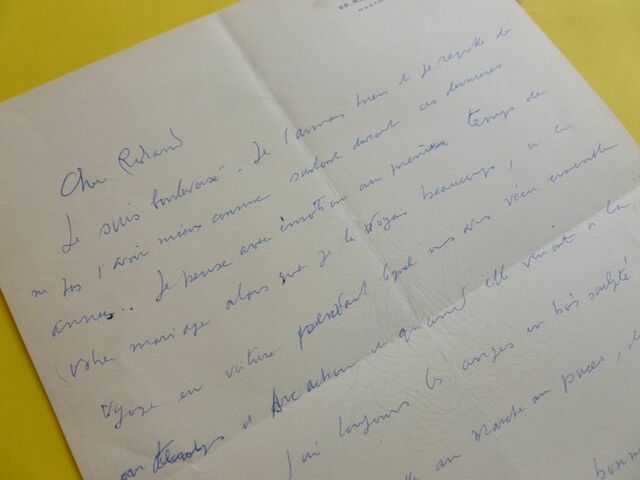 Cher Roland
Je suis bouleversé. Je l'aimais bien et je regrette de
ne pas l'avoir mieux connue surtout durant ces dernières
années.. Je pense avec émotion au premiers temps de
votre mariage alors que je la voyais beaucoup, à ce
voyage en voiture pendant lequel nous avons vécu ensemble
et quand elle venait à la
J'ai toujours les anges en bois sculpté
au marché au puces, d